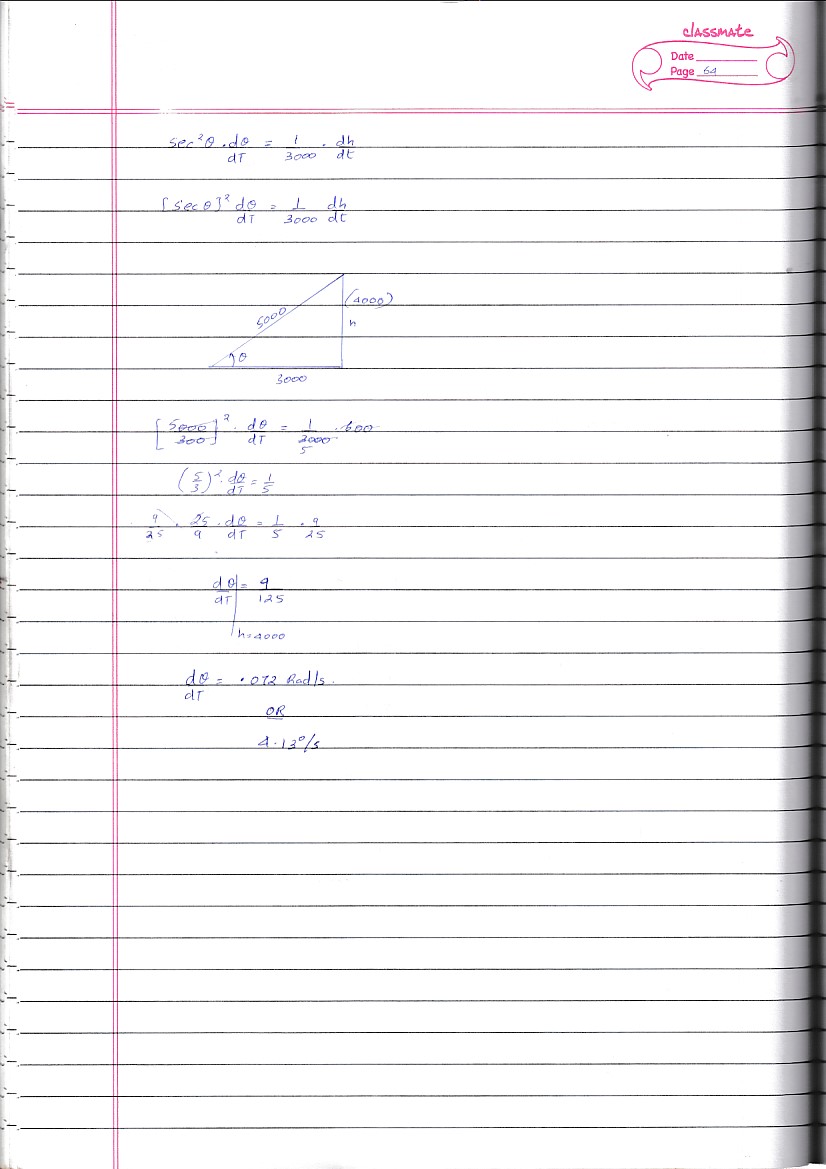 classmate
Date
Page 64
sec²θ . dθ/dT = 1/3000 . dh/dt
[secθ]² dθ/dT = 1/3000 dh/dt
5000
(4000)
h
θ
3000
[5000/300]² . dθ/dT = 1/3000 . 600
5
(5/3)² . dθ/dT = 1/5
9/25 . 25/9 . dθ/dT = 1/5 . 9/25
dθ/dT | = 9/125
h=4000
dθ/dT = .072 Rad/s.
OR
4.13°/s